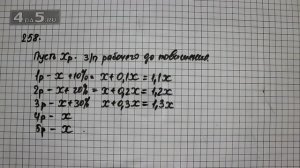 4·5.ru
258.
Пусть Xр. з/п рабочего до повышения
1р - x + 10% = x + 0,1x = 1,1x
2р - x + 20% = x + 0,2x = 1,2x
3р - x + 30% x + 0,3x = 1,3x
4р - x
5р - x